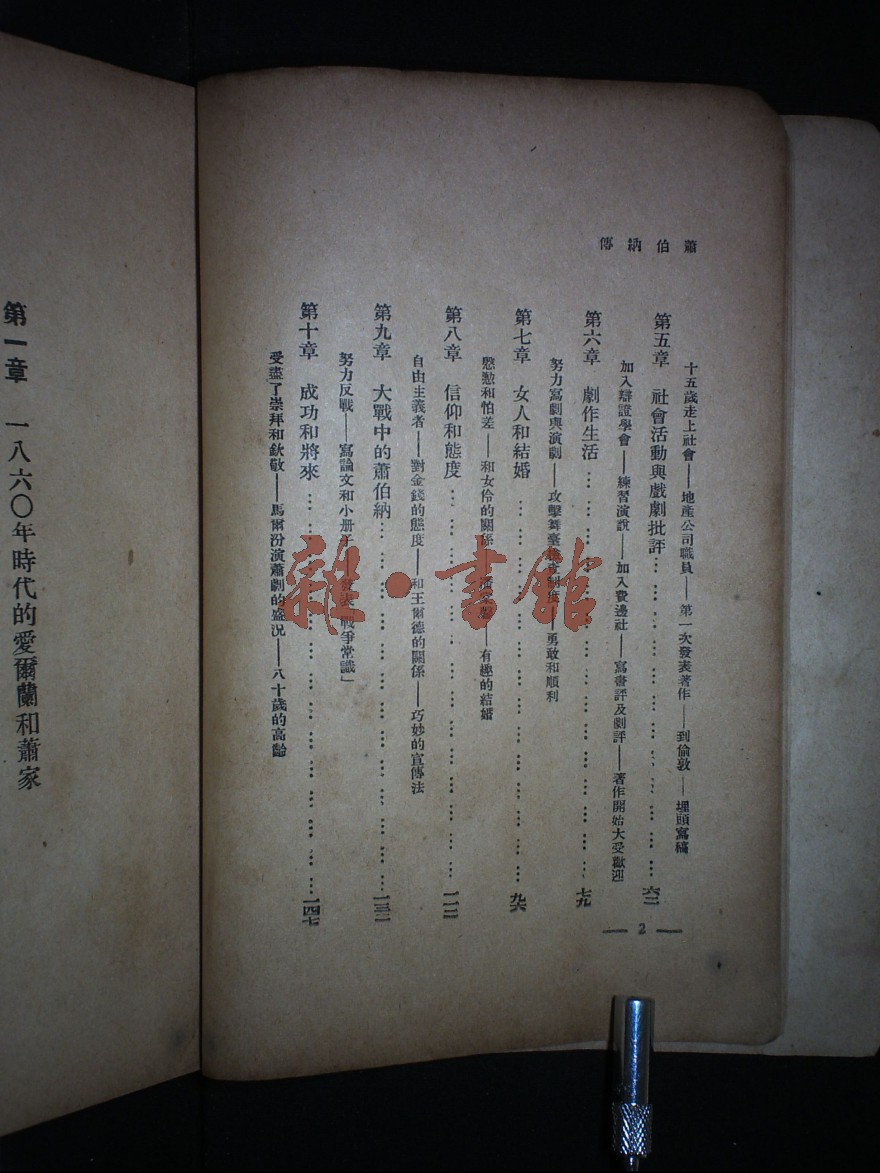 蕭伯納傳
十五歲走上社會——地產公司職員——第一次發表著作——到倫敦——埋頭寫稿
第五章 社會活動與戲劇批評………………………………六二
加入辯證學會——練習演說——加入費邊社——寫書評及劇評——著作開始大受歡迎
第六章 劇作生活………………………………七九
努力寫劇與演劇——攻擊舞臺檢查制度——勇敢和順利
第七章 女人和結婚………………………………九六
慇懃和怕羞——和女伶的關係——有趣的結婚
第八章 信仰和態度………………………………一一二
自由主義者——對金錢的態度——和王爾德的關係——巧妙的宣傳法
第九章 大戰中的蕭伯納………………………………一三二
努力反戰——寫論文和小册子——發表「戰爭常識」
第十章 成功和將來………………………………一四七
受盡了崇拜和欽敬——馬爾汾演蕭劇的盛況——八十歲的高齡
— 2 —
第一章 一八六〇年時代的愛爾蘭和蕭家
雜·書館